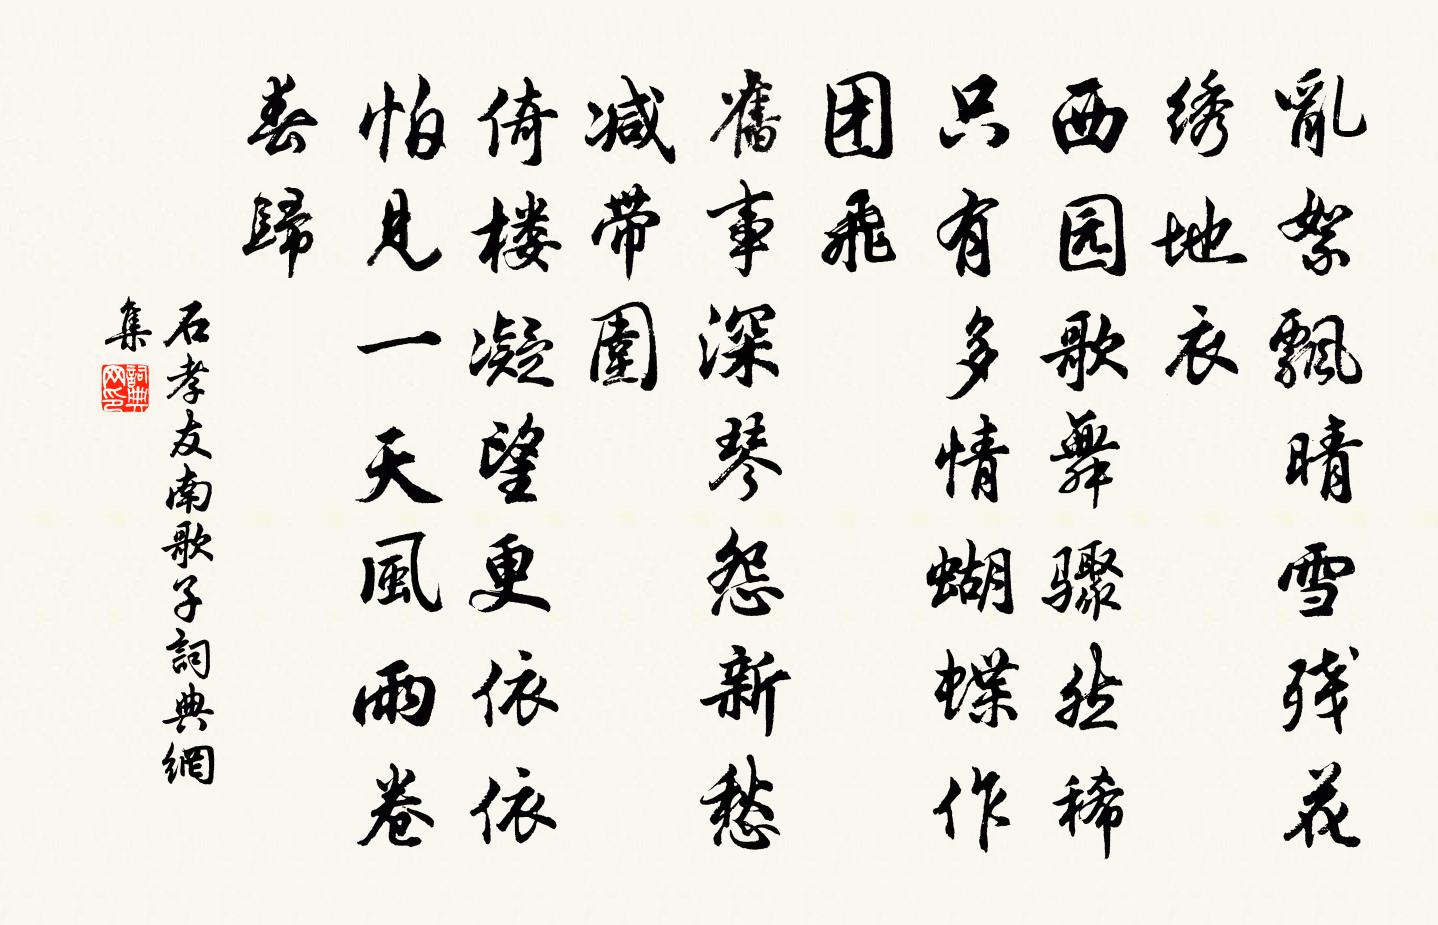 亂絮飄晴雪残花
绣地衣
西园歌舞骤然稀
只有多情蝴蝶作
团飛
舊事深琴怨新愁
减带圍
倚楼凝望更依依
怕見一天風雨卷
春歸
石孝友南歌子詞典網
集
詞典
网印